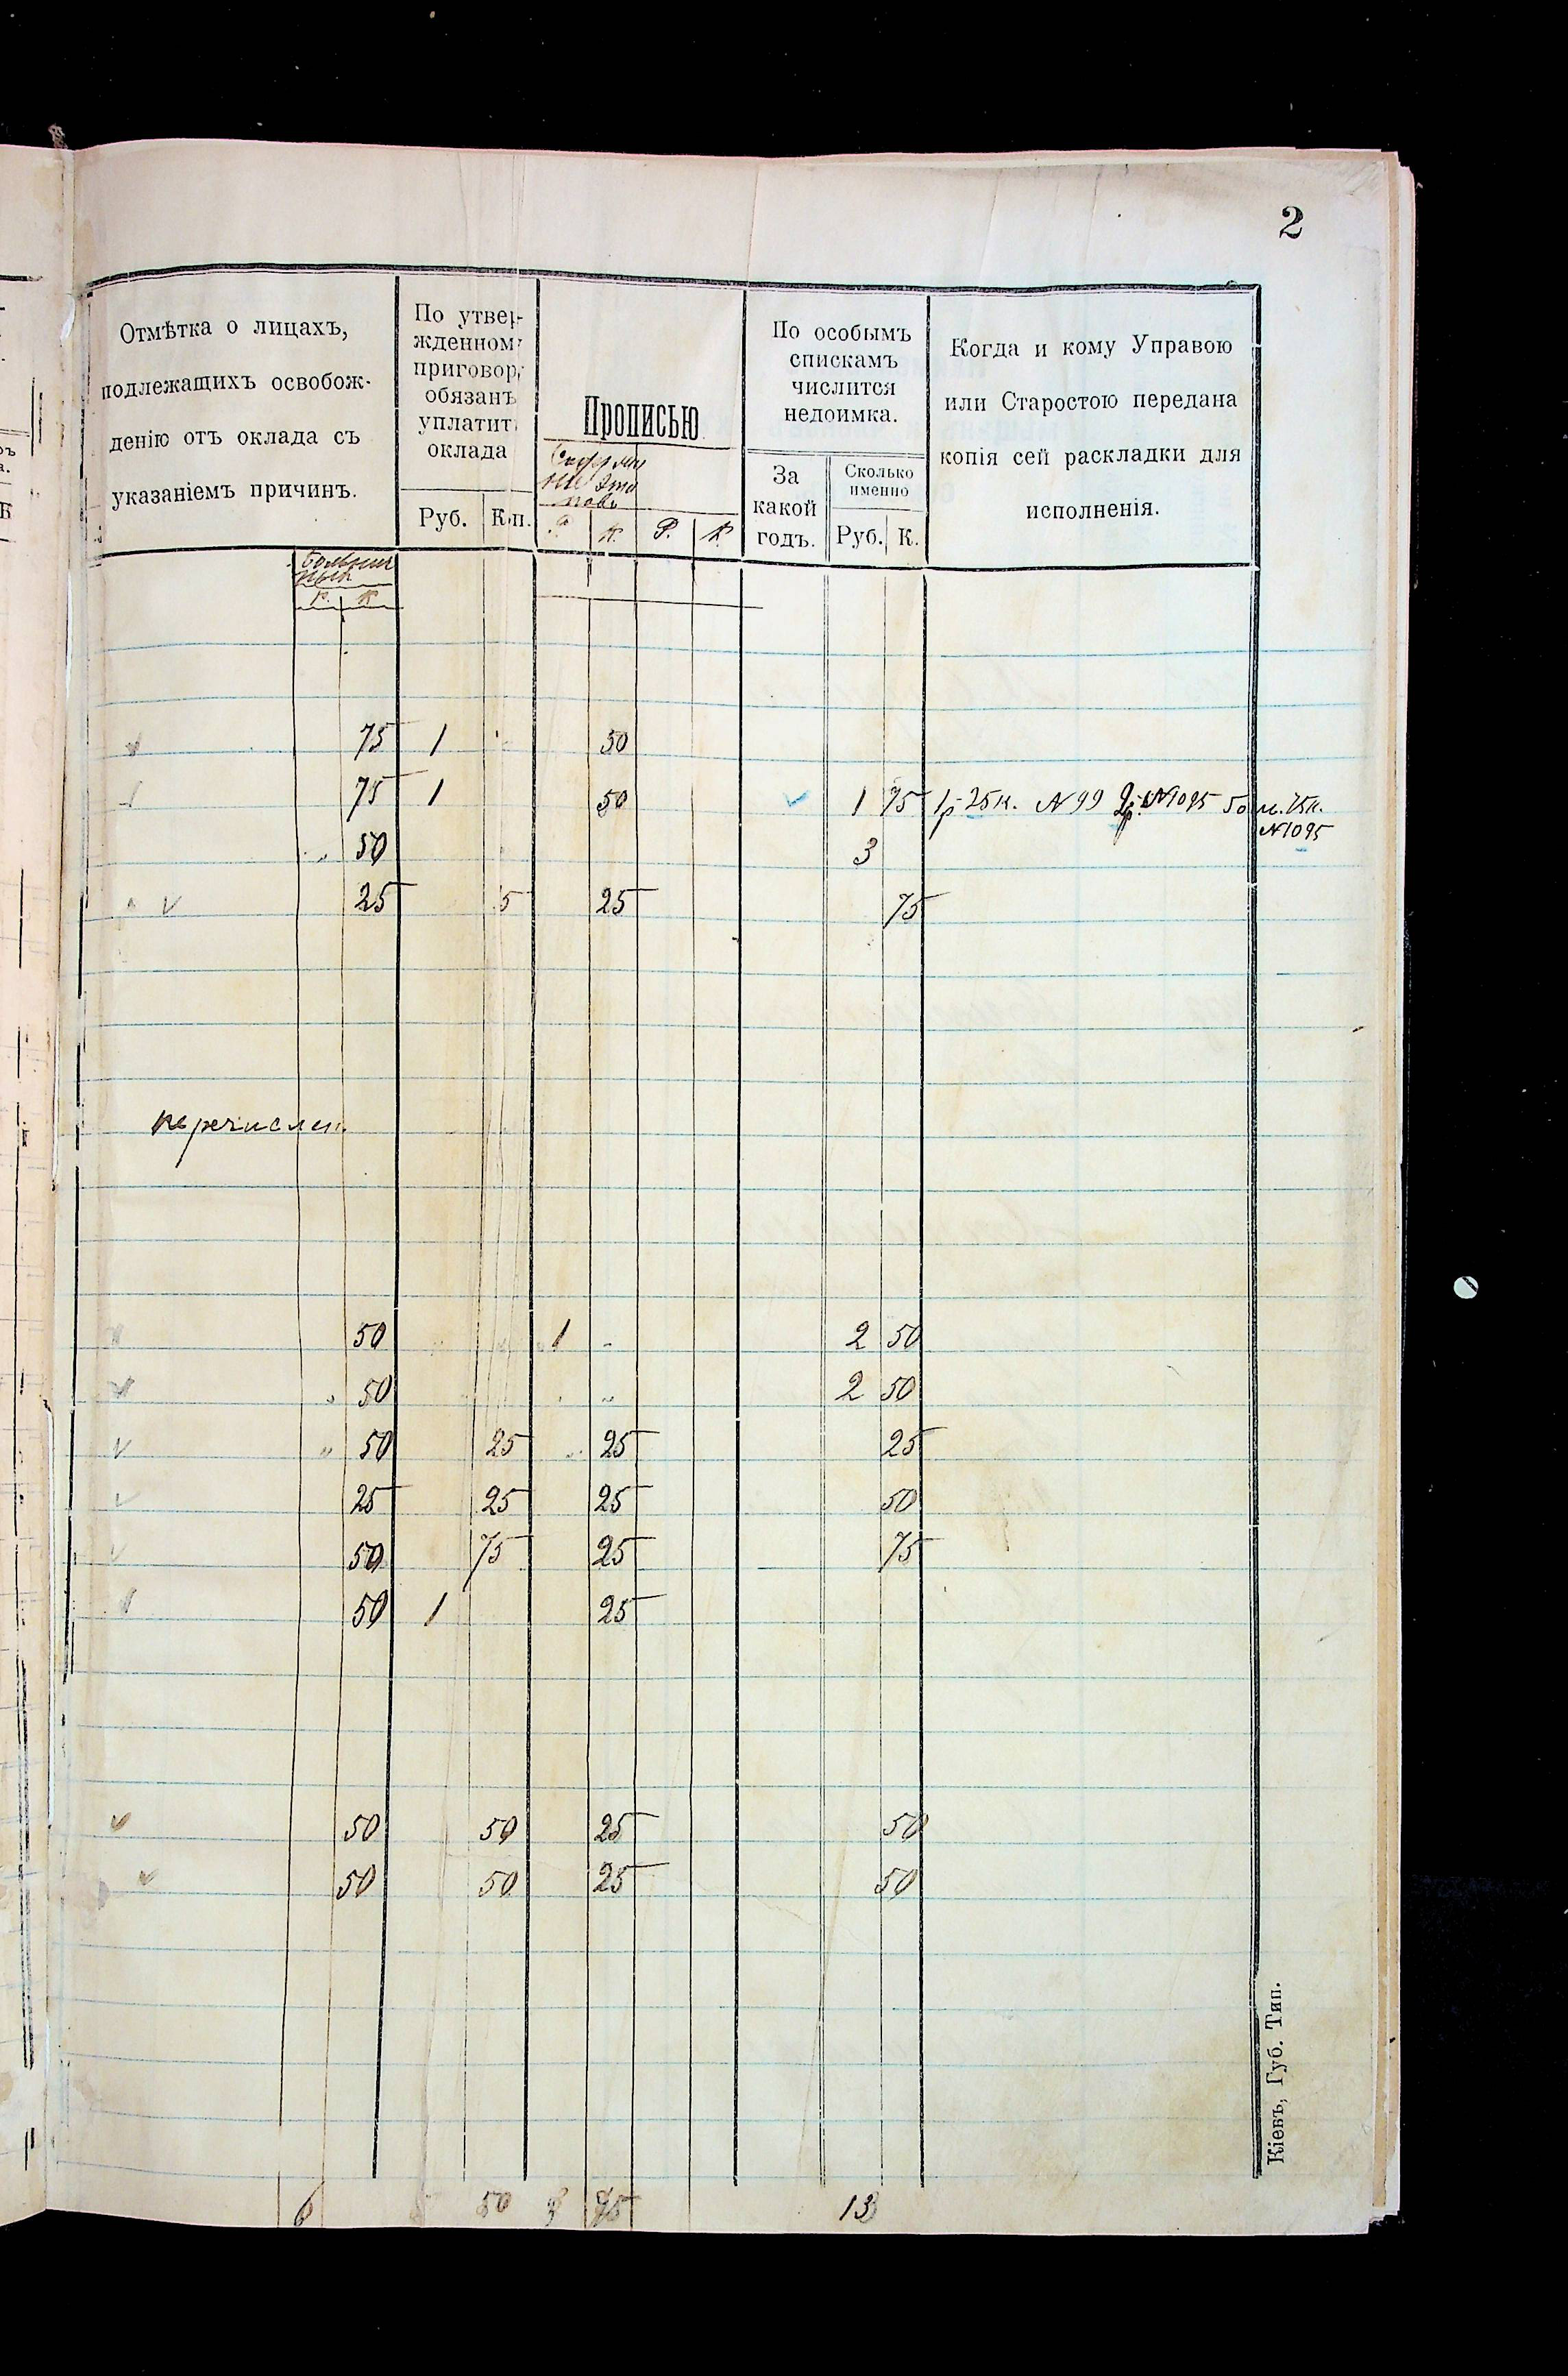 2
Отмѣтка о лицахъ,
подлежащихъ освобож-
денію отъ оклада съ
указаніемъ причинъ.
По утвер-
жденном
приговор
обязанъ
уплатит
оклада
Руб. К п.
Прописью
Р. К. Р. К.
По особымъ
спискамъ
числится
недоимка.
За
какой
годъ.
Сколько
именно
Руб. К.
Когда и кому Управою
или Старостою передана
копія сей раскладки для
исполненія.
Р. К
75 1 50
75 1 50 1 75 1р 25к. N 99 2р. N1095 75к.
N1095
50 3
25 5 25 75
перечислен.
50 1 2 50
" 50 " 2 50
" 50 25 " 25 25
25 25 25 50
50 75 25 75
50 1 25
50 50 25 50
50 50 25 50
6 50 3 75 13
Кіевъ, Губ. Тип.